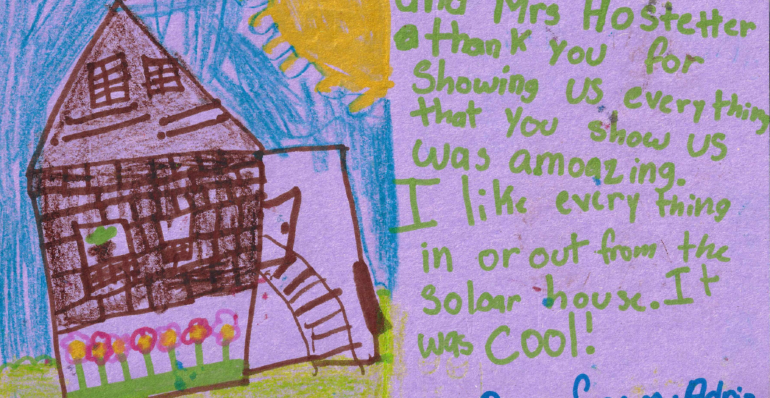 and Mrs Hostetter
thank you for
Showing us everything
that you show us
was amoazing.
I like every thing
in or out from the
soloar house. It
was cool!